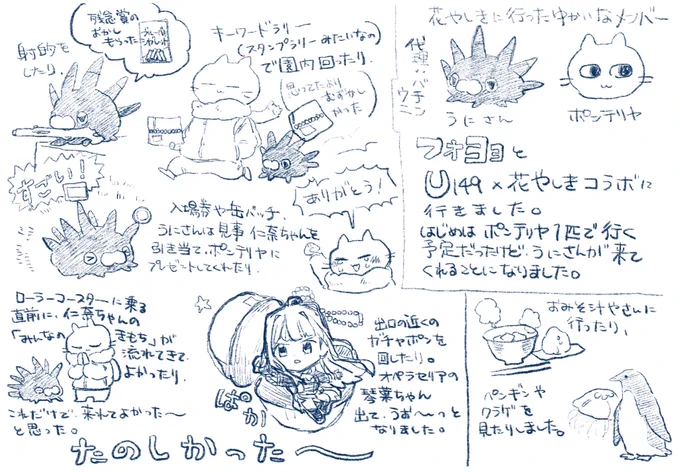 花やしきに行ったゆかいなメンバー
代理:バチモン
ウニ
うにさん
ポンデリヤ
フォヨョと
U149×花やしきコラボに
行きました。
はじめはポンデリヤ1匹で行く
予定だったけど、うにさんが来て
くれることになりました。
射的を
したり、
残念賞の
おかし
もらった
キーワードラリー
(スタンプラリーみたいなの)
で園内回ったり、
思ってたより
むずかし
かった
すごい!
入場券や缶バッチ、
うにさんは見事仁奈ちゃんを
引き当て、ポンデリヤに
プレゼントしてくれたり、
ありがとう!
ローラーコースターに乗る
直前に、仁奈ちゃんの
「みんなのきもち」が
流れてきて
よかったり、
これだけで、来れてよかった〜
と思った。
ぱかっ
出口の近くの
ガチャポンを
回したり。
オペラセリアの
琴葉ちゃん
出て、うお〜〜っと
なりました。
おみそ汁やさんに
行ったり、
ペンギンや
クラゲを
見たりしました。
たのしかった〜